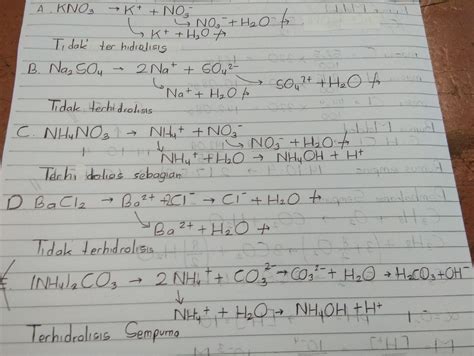 A. KNO₃ → K⁺ + NO₃⁻
NO₃⁻ + H₂O ↛
K⁺ + H₂O ↛
Tidak terhidrolisis
B. Na₂SO₄ → 2Na⁺ + SO₄²⁻
SO₄²⁺ + H₂O ↛
Na⁺ + H₂O ↛
Tidak terhidrolisis
C. NH₄NO₃ → NH₄⁺ + NO₃⁻
NO₃⁻ + H₂O ↛
NH₄⁺ + H₂O → NH₄OH + H⁺
sebagian
D. BaCl₂ → Ba²⁺ + 2Cl⁻ → Cl⁻ + H₂O ↛
Ba²⁺ + H₂O ↛
Tidak terhidrolisis
(NH₄)₂CO₃ → 2NH₄⁺ + CO₃²⁻ → CO₃²⁻ + H₂O → H₂CO₃ + OH⁻
NH₄⁺ + H₂O → NH₄OH + H⁺
Terhidrolisis Sempurna